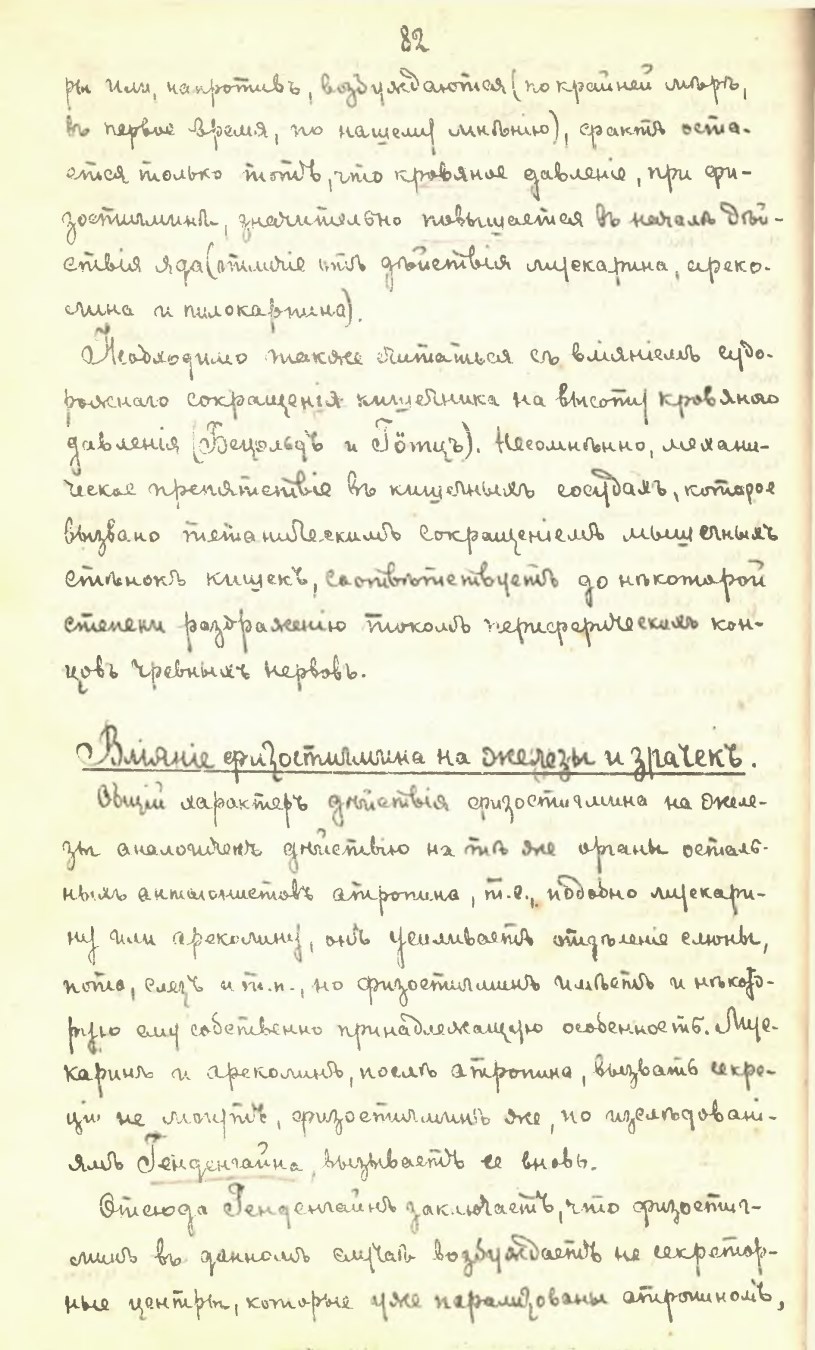 82
ры или, напротивъ, возбуждаются (по крайней мѣрѣ,
въ первое время, по нашему мнѣнію), фактъ оста-
ется только тотъ, что кровяное давленіе, при фи-
зостигминѣ, значительно повышается въ началѣ дѣй-
ствія яда (отличіе отъ дѣйствія мускарина, ареко-
лина и пилокарпина).
Необходимо также считаться съ вліяніемъ судо-
рожнаго сокращенія кишечника на высоту кровяного
давленія (Бецольдъ и Гётцъ). Несомнѣнно, механи-
ческое препятствіе въ кишечныхъ сосудахъ, которое
вызвано тетаническимъ сокращеніемъ мышечныхъ
стѣнокъ кишекъ, соотвѣтствуетъ до нѣкоторой
степени раздраженію токомъ периферическихъ кон-
цовъ чревныхъ нервовъ.
Вліяніе физостигмина на железы и зрачекъ.
Общій характеръ дѣйствія физостигмина на желе-
зы аналогиченъ дѣйствію на тѣ же органы осталь-
ныхъ антагонистовъ атропина, т.е., подобно мускари-
ну или ареколину, онъ усиливаетъ отдѣленіе слюны,
пота, слезъ и т.п., но физостигминъ имѣетъ и нѣкото-
рую ему собственно принадлежащую особенность. Мус-
каринъ и ареколинъ, послѣ атропина, вызвать секре-
ціи не могутъ, физостигминъ же, по изслѣдовані-
ямъ Генденгайна, вызываетъ ее вновь.
Отсюда Генденгайнъ заключаетъ, что физостиг-
минъ въ данномъ случаѣ возбуждаетъ не секретор-
ные центры, которые уже парализованы атропиномъ,